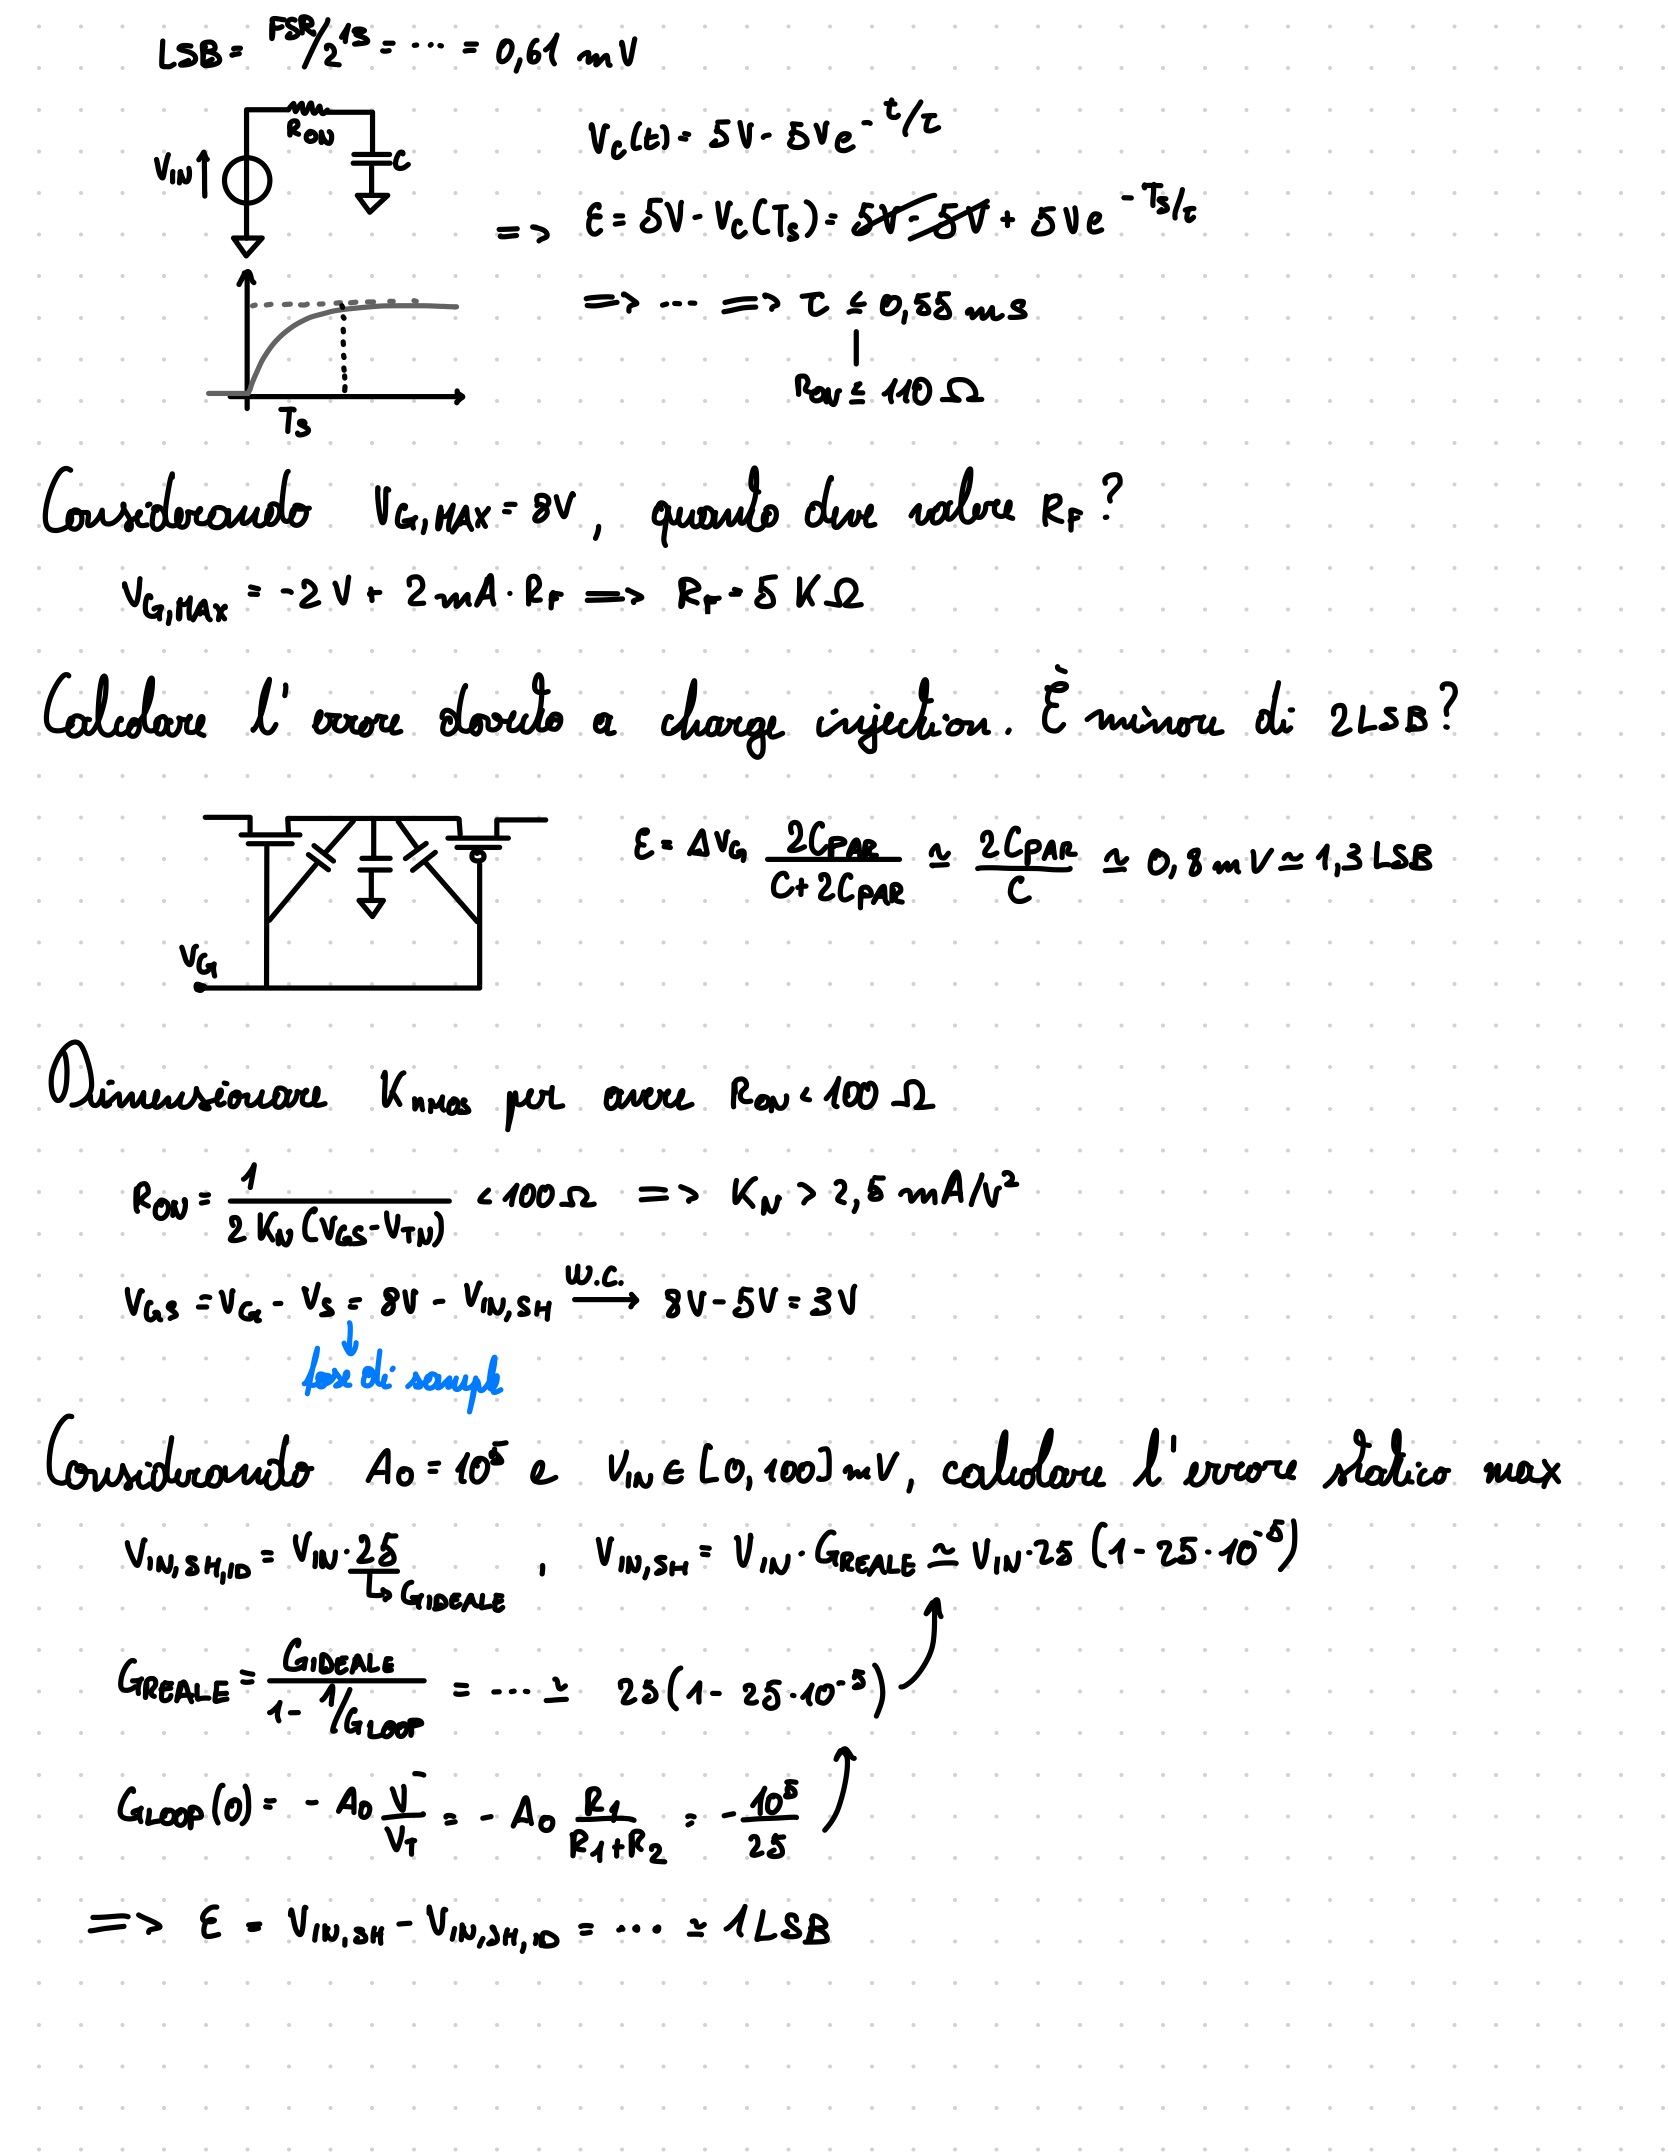 LSB = FSR/2^13 = ... = 0,61 mV
R_ON
V_IN
C
V_C(t) = 5V - 5V e^-t/τ
=> ε = 5V - V_C(T_S) = 5V - 5V + 5V e^-T_S/τ
=> ... => τ ≤ 0,55 ms
R_ON ≤ 110 Ω
T_S
Considerando V_G,MAX = 8V, quanto deve valere R_F?
V_G,MAX = -2V + 2mA · R_F => R_F = 5 KΩ
Calcolare l'errore dovuto a charge injection. È minore di 2LSB?
ε = ΔV_G 2C_PAR/(C+2C_PAR) ≃ 2C_PAR/C ≃ 0,8 mV ≃ 1,3 LSB
V_G
Dimensionare K_nMOS per avere R_ON < 100 Ω
R_ON = 1/(2 K_N (V_GS - V_TN)) < 100 Ω => K_N > 2,5 mA/V²
V_GS = V_G - V_S = 8V - V_IN,SH W.C. → 8V - 5V = 3V
fase di sample
Considerando A0 = 10^5 e V_IN ∈ [0, 100] mV, calcolare l'errore statico max
V_IN,SH,ID = V_IN · 25 , V_IN,SH = V_IN · G_REALE ≃ V_IN · 25 (1 - 25 · 10^-5)
G_IDEALE
G_REALE = G_IDEALE/(1 - 1/G_LOOP) = ... ≃ 25 (1 - 25 · 10^-5)
G_LOOP(0) = - A0 V^-/V_T = - A0 R_1/(R_1+R_2) = - 10^5/25
=> ε = V_IN,SH - V_IN,SH,ID = ... ≃ 1 LSB